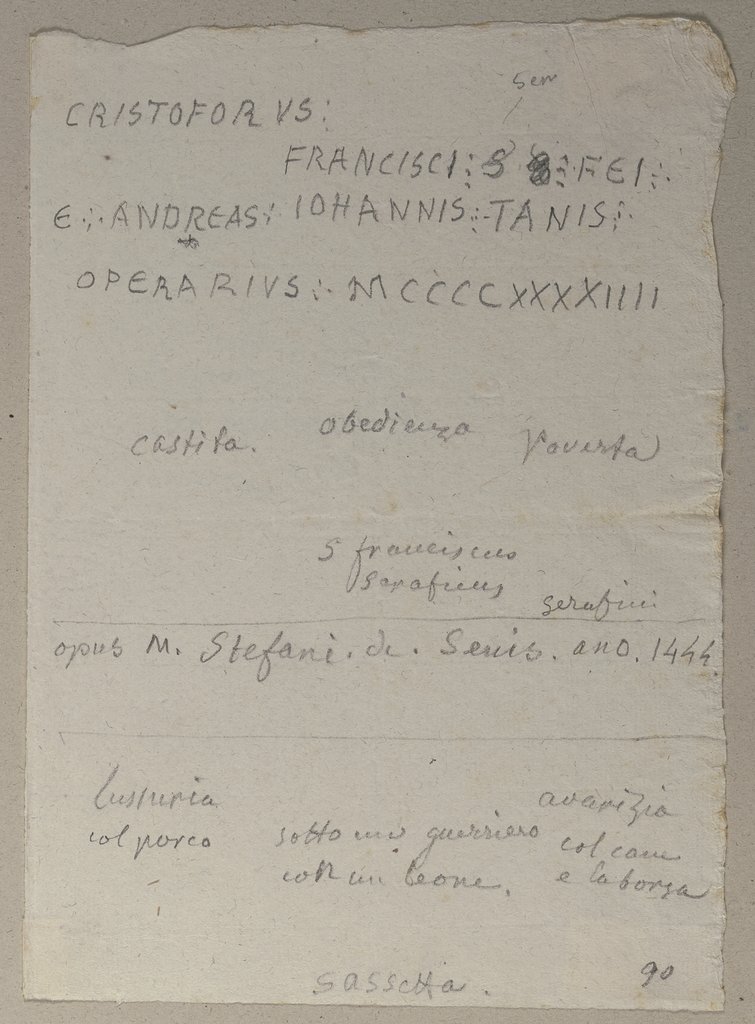 Ser
CRISTOFORVS:
FRANCISCI: S FEI:
E: ANDREAS: IOHANNIS: TANIS:
OPERARIVS: MCCCCXXXXIIII
castita. obedienza Poverta
S franciscus
Seraficus
serafini
opus M. Stefani. de. Senis. ano. 1444
lussuria avarizia
col porco sotto un guerriero col cane
con un leone. e la borsa
sassetta.
90